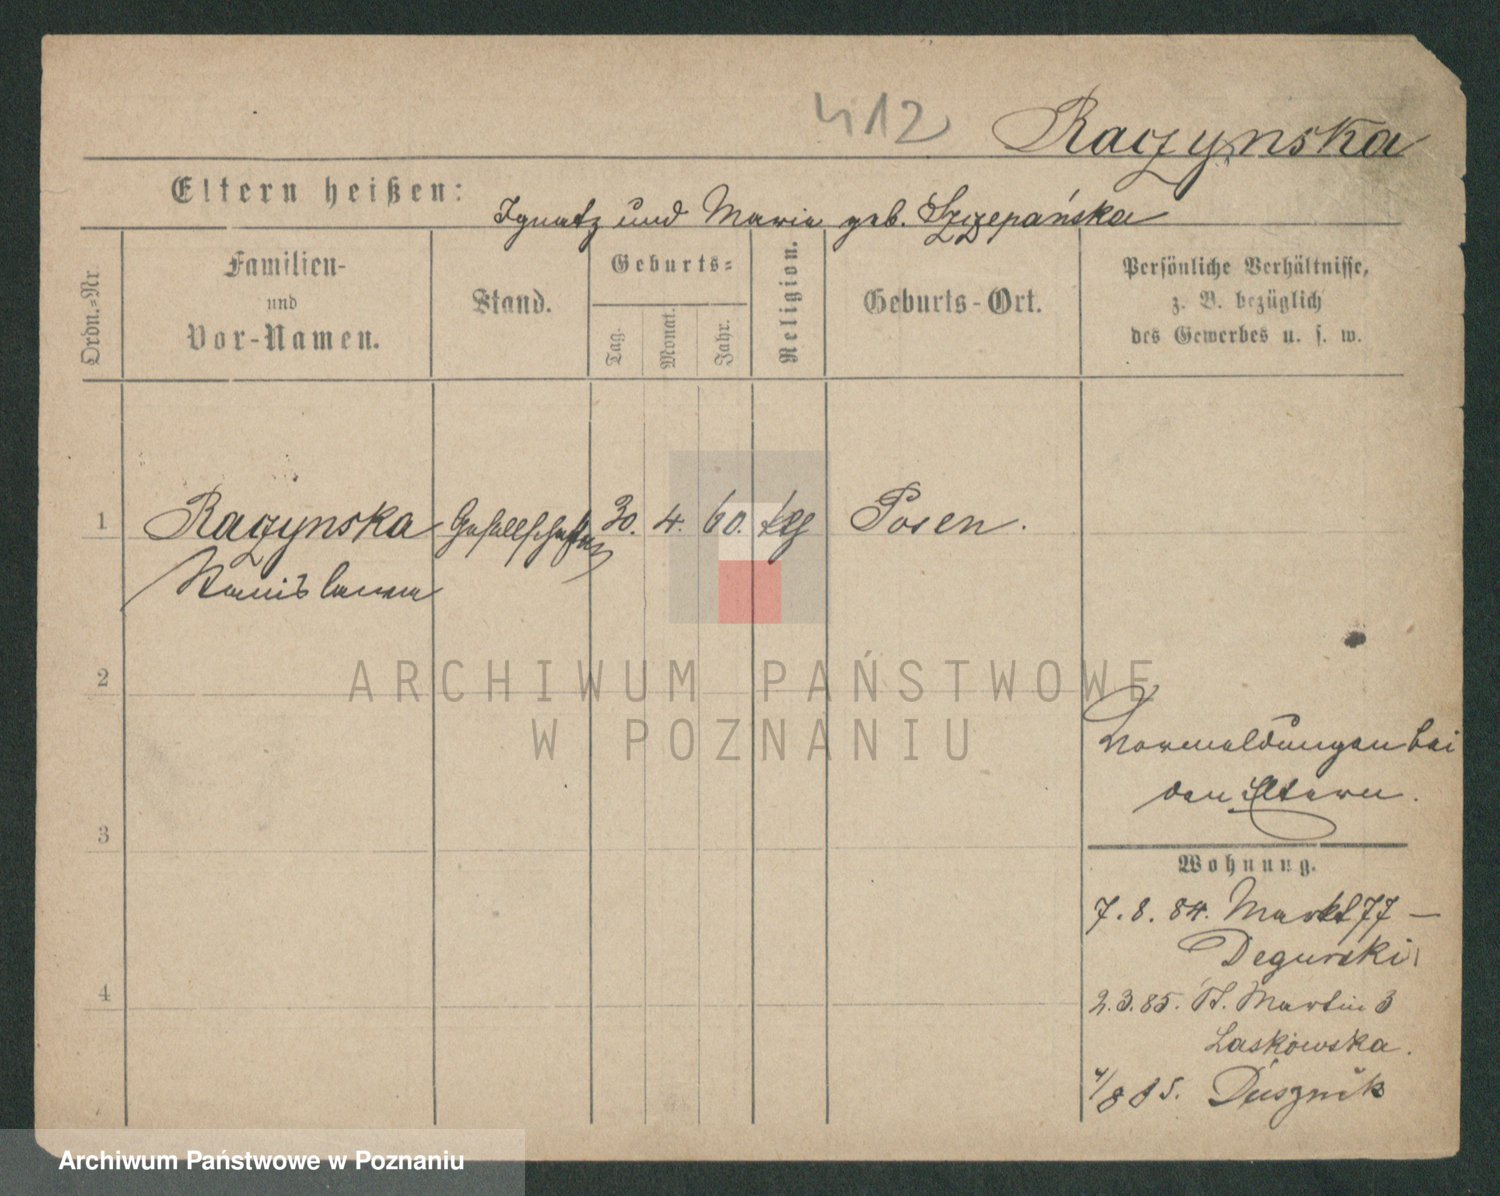 412
Raczynska
Eltern heißen: Ignatz und Marie geb. Szczepańska
Ordn.-Nr
Familien-
und
Vor-Namen.
Stand.
Geburts-
Tag.
Monat.
Jahr.
Religion.
Geburts-Ort.
Persönliche Verhältnisse,
z. B. bezüglich
des Gewerbes u. s. w.
1 Raczynska 30. 4. 60. Posen.
Stanislawa
2
ARCHIWUM PAŃSTWOWE
W POZNANIU
Vormeldungen bei
den Eltern.
3
Wohnung.
7. 8. 84. Markt 77 –
Degurski
4
2. 3. 85. St. Martin 3
Laskowska.
4/8 85. Dusznik
Archiwum Państwowe w Poznaniu